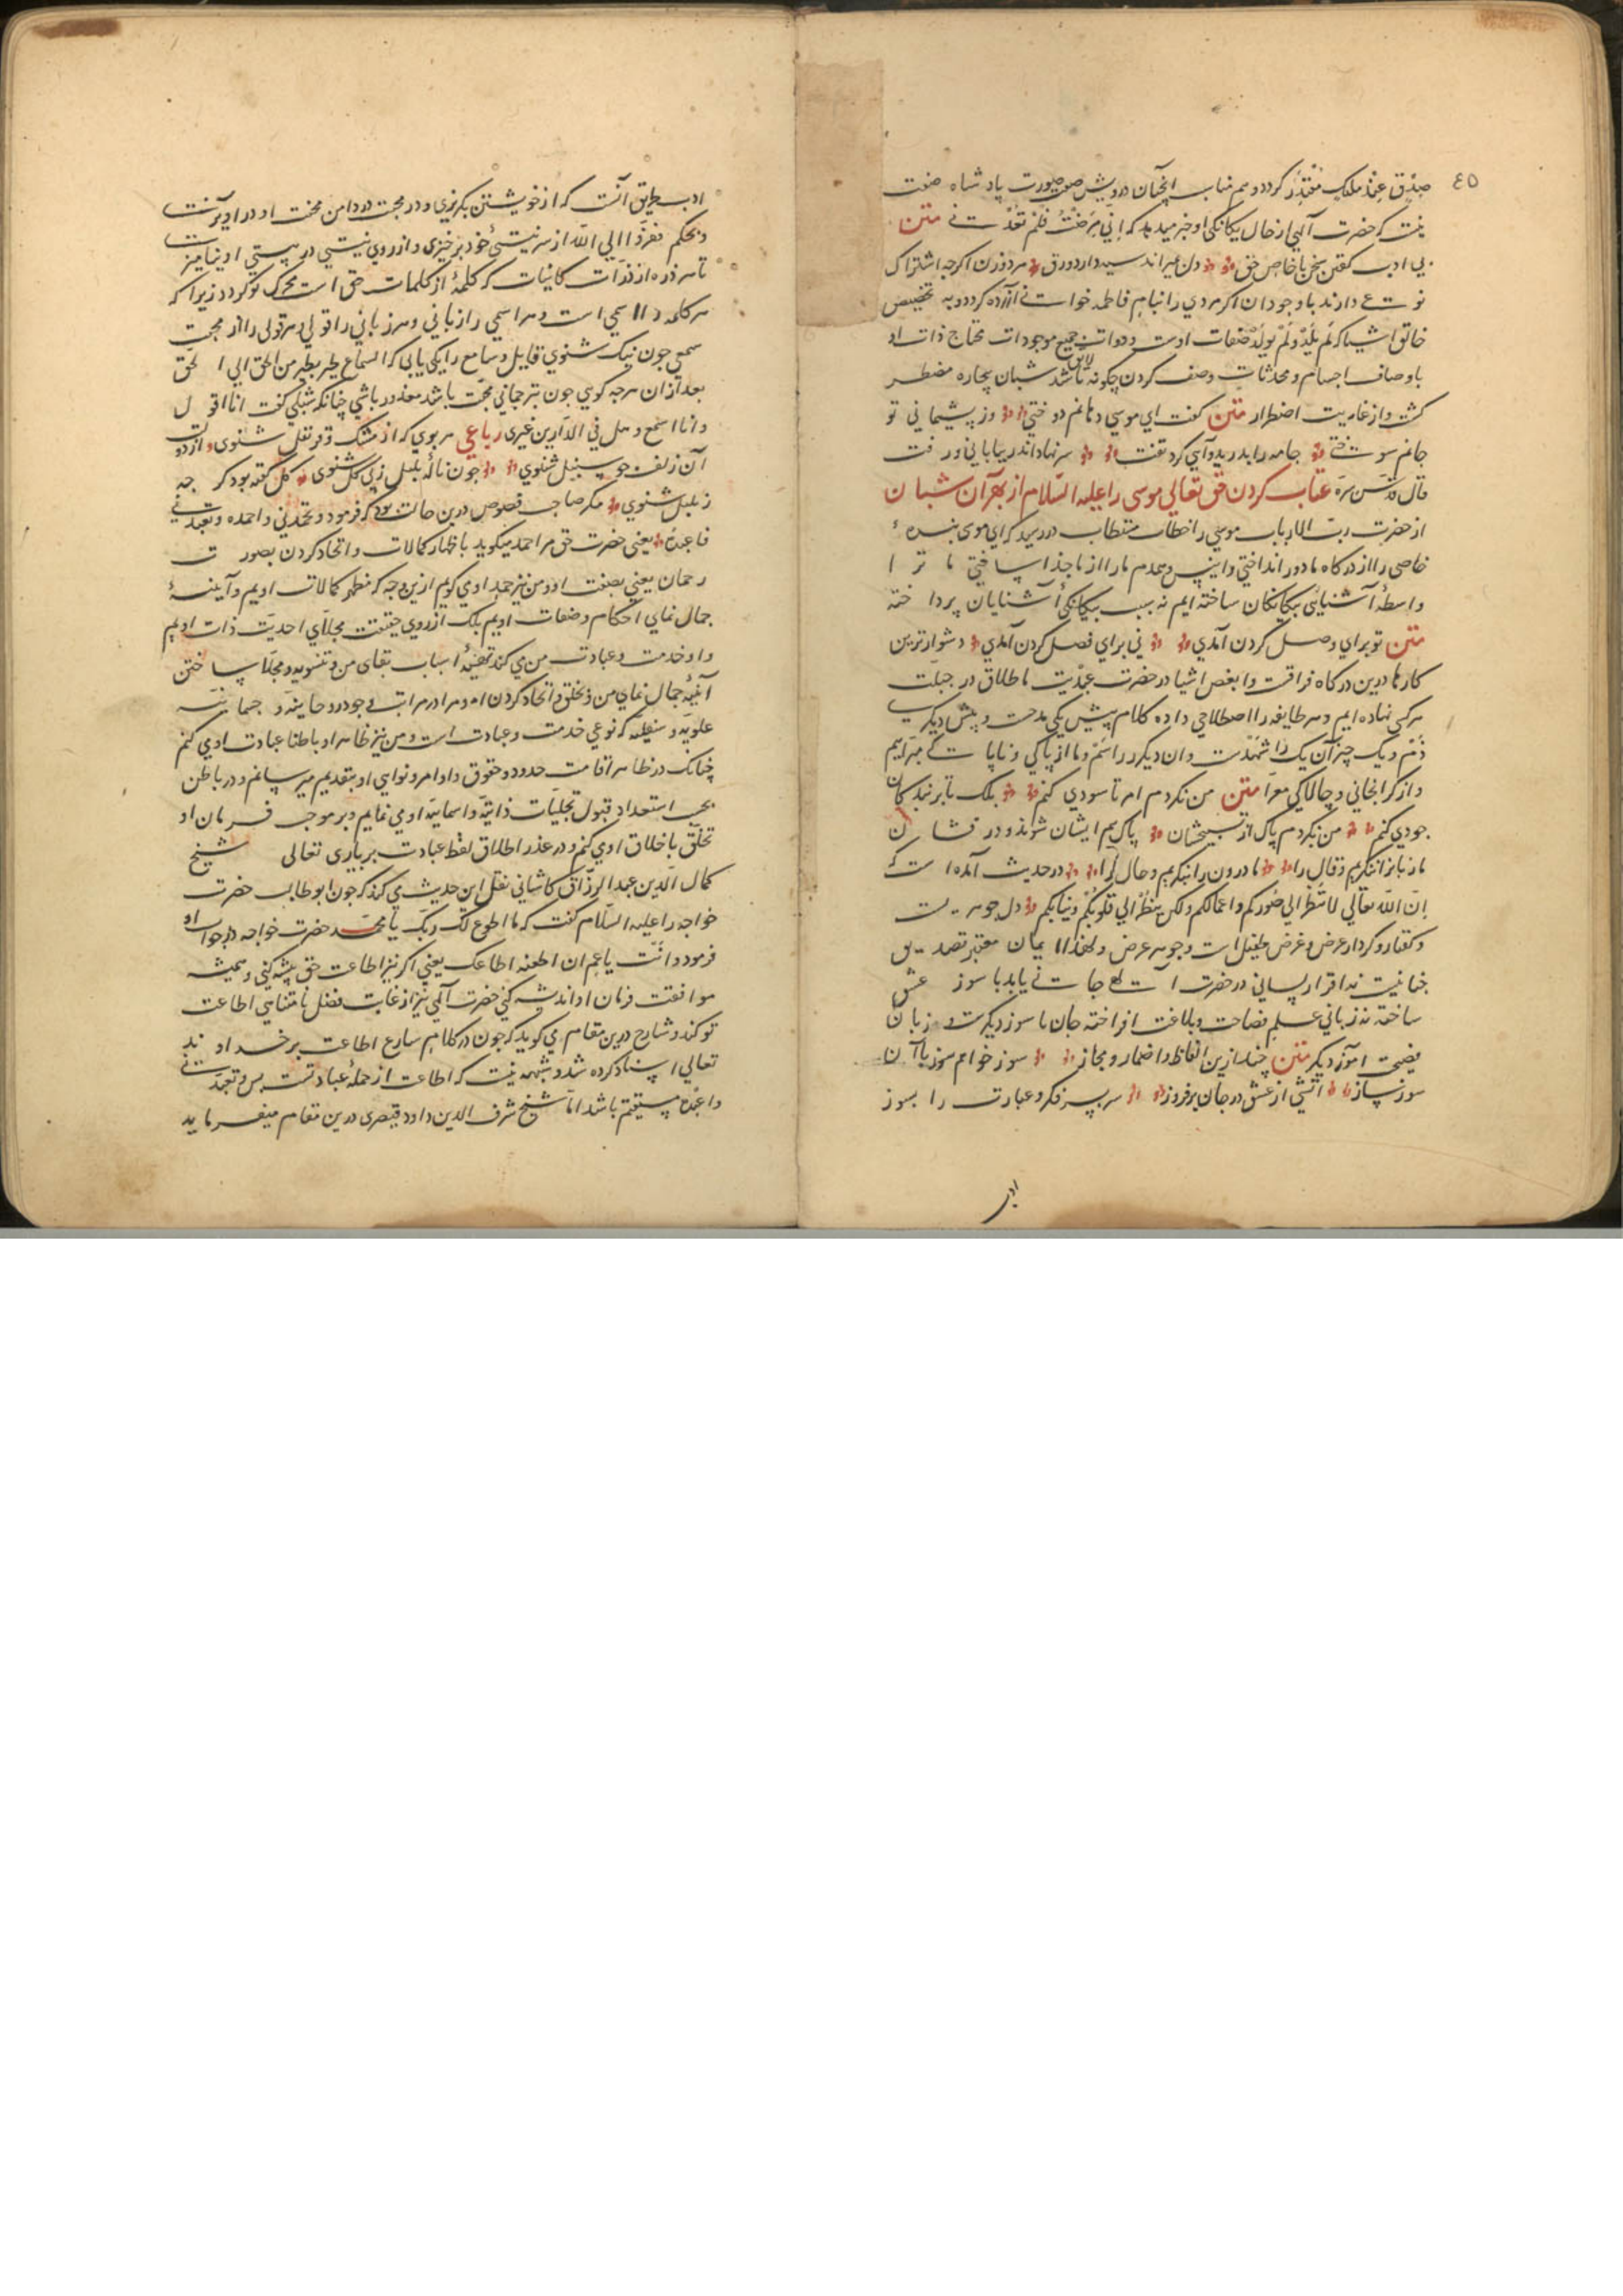 ٤٥
صِدْقٍ عِنْدَ مَلِیکٍ مُقْتَدِرٍ کردد و هم مناسب آنچنان درویش صفی صورت پادشاه صفت
نیست که حضرت آلهی از حال یکانکی او خبر میدهد که اِنّی مَرِضْتُ فَلَمْ تَعُدْنی متن
بی ادب کفتن سخن با خاص حق دل میراند سیه دارد ورق مرد و زن اکرچه اشتراک
نوعی دارند با وجود آن اکر مردی را بنام فاطمه خوانی آزرده کردد و به تخصیص
خالق اشیا که لَمْ یَلِدْ وَلَمْ یُولَدْ صفات اوست و ذوات جمیع موجودات محتاج ذات او
باوصاف اجسام و محدثات وصف کردن چکونه لایق باشد شبان بیچاره مضطر
کشت و از غایت اضطرار متن کفت ای موسی دهانم دوختی وز پشیمانی تو
جانم سوختی جامه را بدرید و آهی کرد تفت سر نهاد اندر بیابانی و رفت
قال قدّس سرّه عتاب کردن حق تعالی موسی را علیه السّلام از بهر آن شبان
از حضرت ربّ الارباب موسی را خطاب متطاب در رسید که ای موسی بنده
خاصی را از درکاه ما دور انداختی و انیس و همدم ما را از ما جدا ساختی ما ترا
واسطهٔ آشنایی بیکانکان ساخته ایم نه سبب بیکانکی آشنایان پرداخته
متن تو برای وصل کردن آمدی نی برای فصل کردن آمدی دشوارترین
کارها درین درکاه فراقست و ابغض اشیا در حضرت عبدیت ما طلاق در جبلّت
هر کسی نهاده ایم و هر طایفه را اصطلاحی داده کلام پیش یکی مدحت و پیش دیکری
ذمّ و یک چیز آن یک را شهدست و ان دیکر را سمّ و ما از پاکی و ناپاکی مبرّاییم
و از کرانجانی و چالاکی معرّا متن من نکردم امر تا سودی کنم بلک تا بر بندکان
جودی کنم من نکردم پاک از تسبیحشان پاک هم ایشان شوند و درفشان
ما زبانرا ننکریم و قال را ما درون را بنکریم و حال را در حدیث آمده است که
اِنَّ اللّهَ تعالی لا یَنْظُرُ الی صُوَرِکم و اعمالکم ولکن یَنْظُرُ الی قلوبِکُم و نیّاتِکم دل جوهریست
و کفتار و کردار عرض و عرض طفیل است و جوهر غرض و لهذا ایمان معتبر تصدیق
جنانیست نه اقرار لسانی در حضرت آلهی جانی یابد با سوز عشق
ساخته نه زبانی علم فصاحت و بلاغت افراخته جان با سوز دیکرست و زبان
فصیحت آموز دیکر متن چند ازین الفاظ و اضمار و مجاز سوز خواهم سوز با آن
سوز ساز آتشی از عشق در جان برفروز سر بسر فکر و عبارت را بسوز
ادب
ادب طریق آنست که از خویشتن بکریزی و در محبت در دامن محنت او در آویزی
و بحکم ففرّوا الی اللّه از سر نیستی خود برخیزی و از روی نیستی در هستی او نیامیزی
تا هر ذره از ذرّات کاینات که کلمهٔ از کلمات حق است محرک تو کردد زیرا که
هر کلمه را اسمی است و هر اسمی را زبانی و هر زبانی را قولی و هر قولی را از محبت
سمعی چون نیک شنوی قایل و سامع را یکی یابی که السماع طیر یطیر من الحق الی الحقّ
بعد از آن هرچه کویی چون ترجمانی محبّت باشد معذور باشی چنانکه شبلی کفت انا اقول
و انا اسمع و هل فی الدّارین غیری رباعی هر بوی که از مشک و قرنفل شنوی از دولت
آن زلف چو سنبل شنوی چون نالهٔ بلبل ز پی کل شنوی کل کفته بود کرچه
ز بلبل شنوی مکر صاحب فصوص درین حالت بود که فرمود و یحمدنی و احمده و یعبدنی
فاعبدهٔ یعنی حضرت حق مرا حمد میکوید باظهار کمالات و اتحاد کردن بصورت
رحمان یعنی بصفت او و من نیز حمد اوی کویم ازین وجه که مظهر کمالات اویم و آیینهٔ
جمال نمای احکام و صفات اویم بلک از روی حقیقت مجلّای احدیّت ذات اویم
و او خدمت و عبادت من می کند بتهیهٔ اسباب بقای من و تسویه و مجلّا ساختن
آینهٔ جمال نمای من و بخلق و اتحاد کردن او مرا در مراتب وجود روحانیه و جسمانیه
علویه و سفلیّه که نوعی خدمت و عبادت است و من نیز ظاهرا و باطنا عبادت اوی کنم
چنانک در ظاهر اقامت حدود و حقوق و اوامر و نواهی او بتقدیم میرسانم و در باطن
بحسب استعداد قبول تجلیّات ذاتیّه و اسماییهٔ او می نمایم و بر موجب فرمان او
تخلّق باخلاق اوی کنم و در عذر اطلاق لفظ عبادت بر باری تعالی شیخ
کمال الدّین عبد الرزّاق کاشانی نقل این حدیث می کند که چون ابو طالب حضرت
خواجه را علیه السّلام کفت که ما اطوع لک ربّک یا محمّد حضرت خواجه در جواب او
فرمود و انت یا عم ان اطعته اطاعک یعنی اکر نیز اطاعت حق پیشه کنی و همیشه
موافقت فرمان او اندیشه کنی حضرت آلهی نیز از غایت فضل نامتناهی اطاعت
تو کند و شارح درین مقام می کوید که چون در کلام شارع اطاعت بر خداوند
تعالی اسناد کرده شد و شبهه نیست که اطاعت از جملهٔ عبادتست پس یعبدنی
و اعبده مستقیم باشد امّا شیخ شرف الدین داود قیصری درین مقام میفرماید